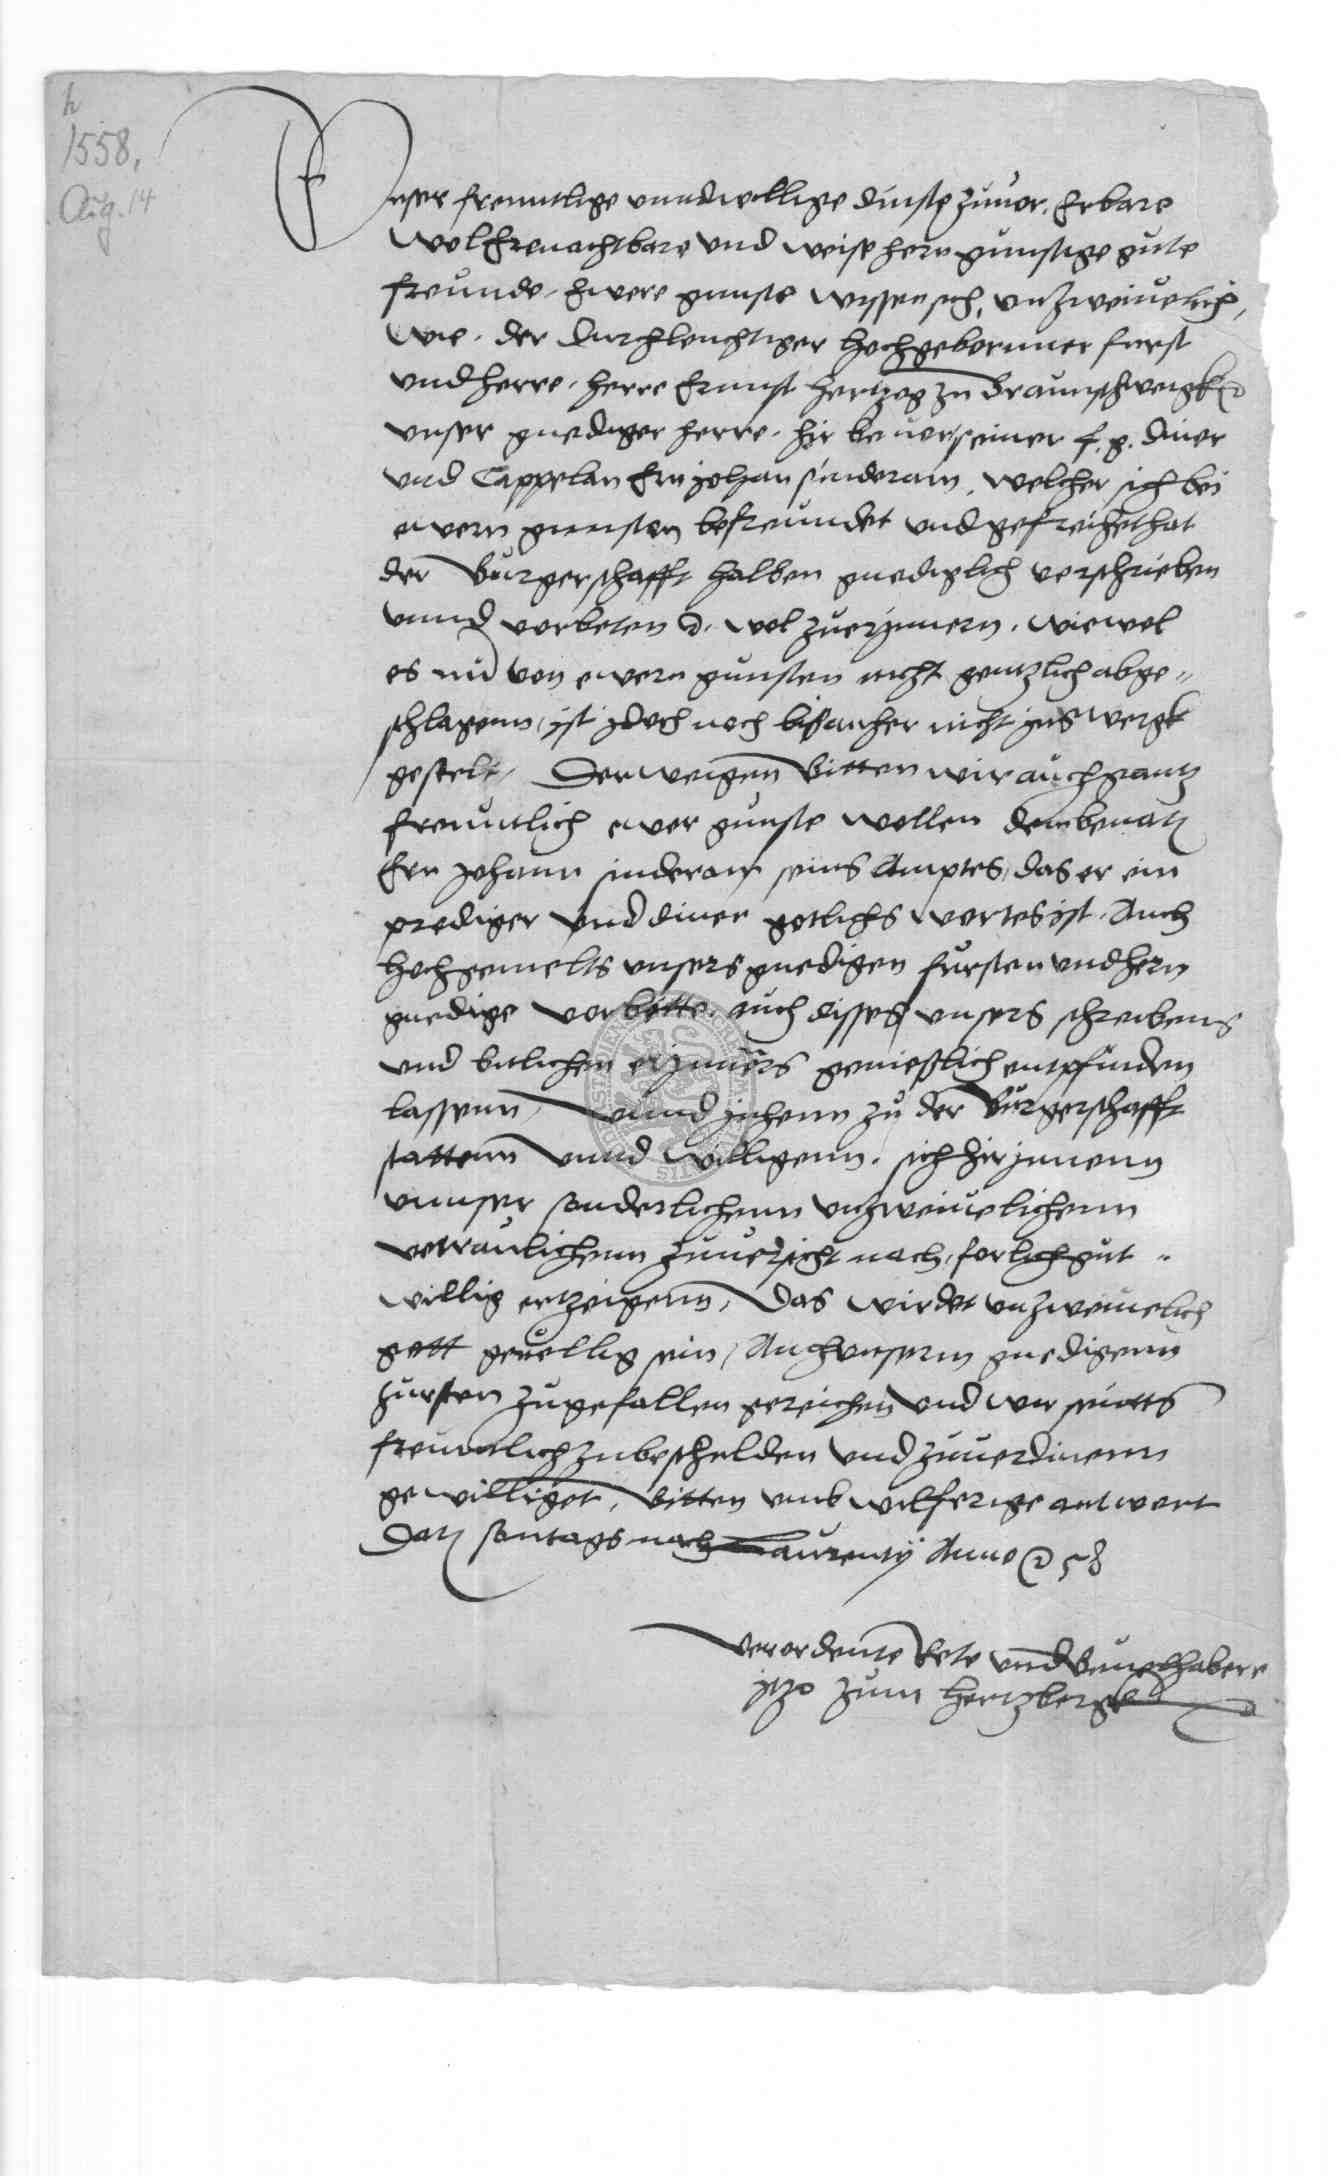 h
1558,
Aug. 14
Unser freuntlige unnd willige dinste zuvor. Erbare
wol Erenachtbare und weise hern gunstige gute
freunde. Ewere gunste wissen sich, unzweiuelich,
wie. der durchleuchtiger hochgebornner furst
und herre. herre Ernnst hertzog zu Braunschweigk etc
unser gnediger herre. hir beuor seiner f. g. diner
und Cappelan Ern Johan sinderam. welcher sich bei
ewern gunsten befreundet und gefreihet hat
der Burgerschafft halben gnediglich verschrieben
unnd vorbeten etc. wol zuerjnnern. wiewol
es nu von ewern gunsten nicht gentzlich abge„
schlagenn, ist jdoch noch bis anher nicht jns wergk
gestelt, Derweigen Bitten wir auch gantz
freuntlich ewer gunste wollen den benantn
Ern Johann sinderam seins Amptes, das er ein
prediger und diner gotlichs wortes ist. Auch
hochgemelts unsers gnedigen fursten und hern
gnedige vorbitte. auch disses unsers schreibens
und bitlichen erjnners genießlich entpfinden
lassenn, unnd jhenn zu der Burgerschafft
stattenn unnd willigenn. sich hir jnnenn
unnser sonderlichenn unzweiuelichenn
vertraulichenn zuuersicht nach, forlich gut„
willig ertzeigenn, Das wirdet unzweiuelich
gott geuellig sein, Auch unserm gnedigenn
fursten zugefallen gereichen und wir seintts
freuntlich zubeschulden und zuuerdinenn
gewilliget, Bitten umb wilferige antwort
Datum sontags nach Laurentij Anno etc 58
Verordente Rete und Beuelhabere
jtzo zum Hertzberge